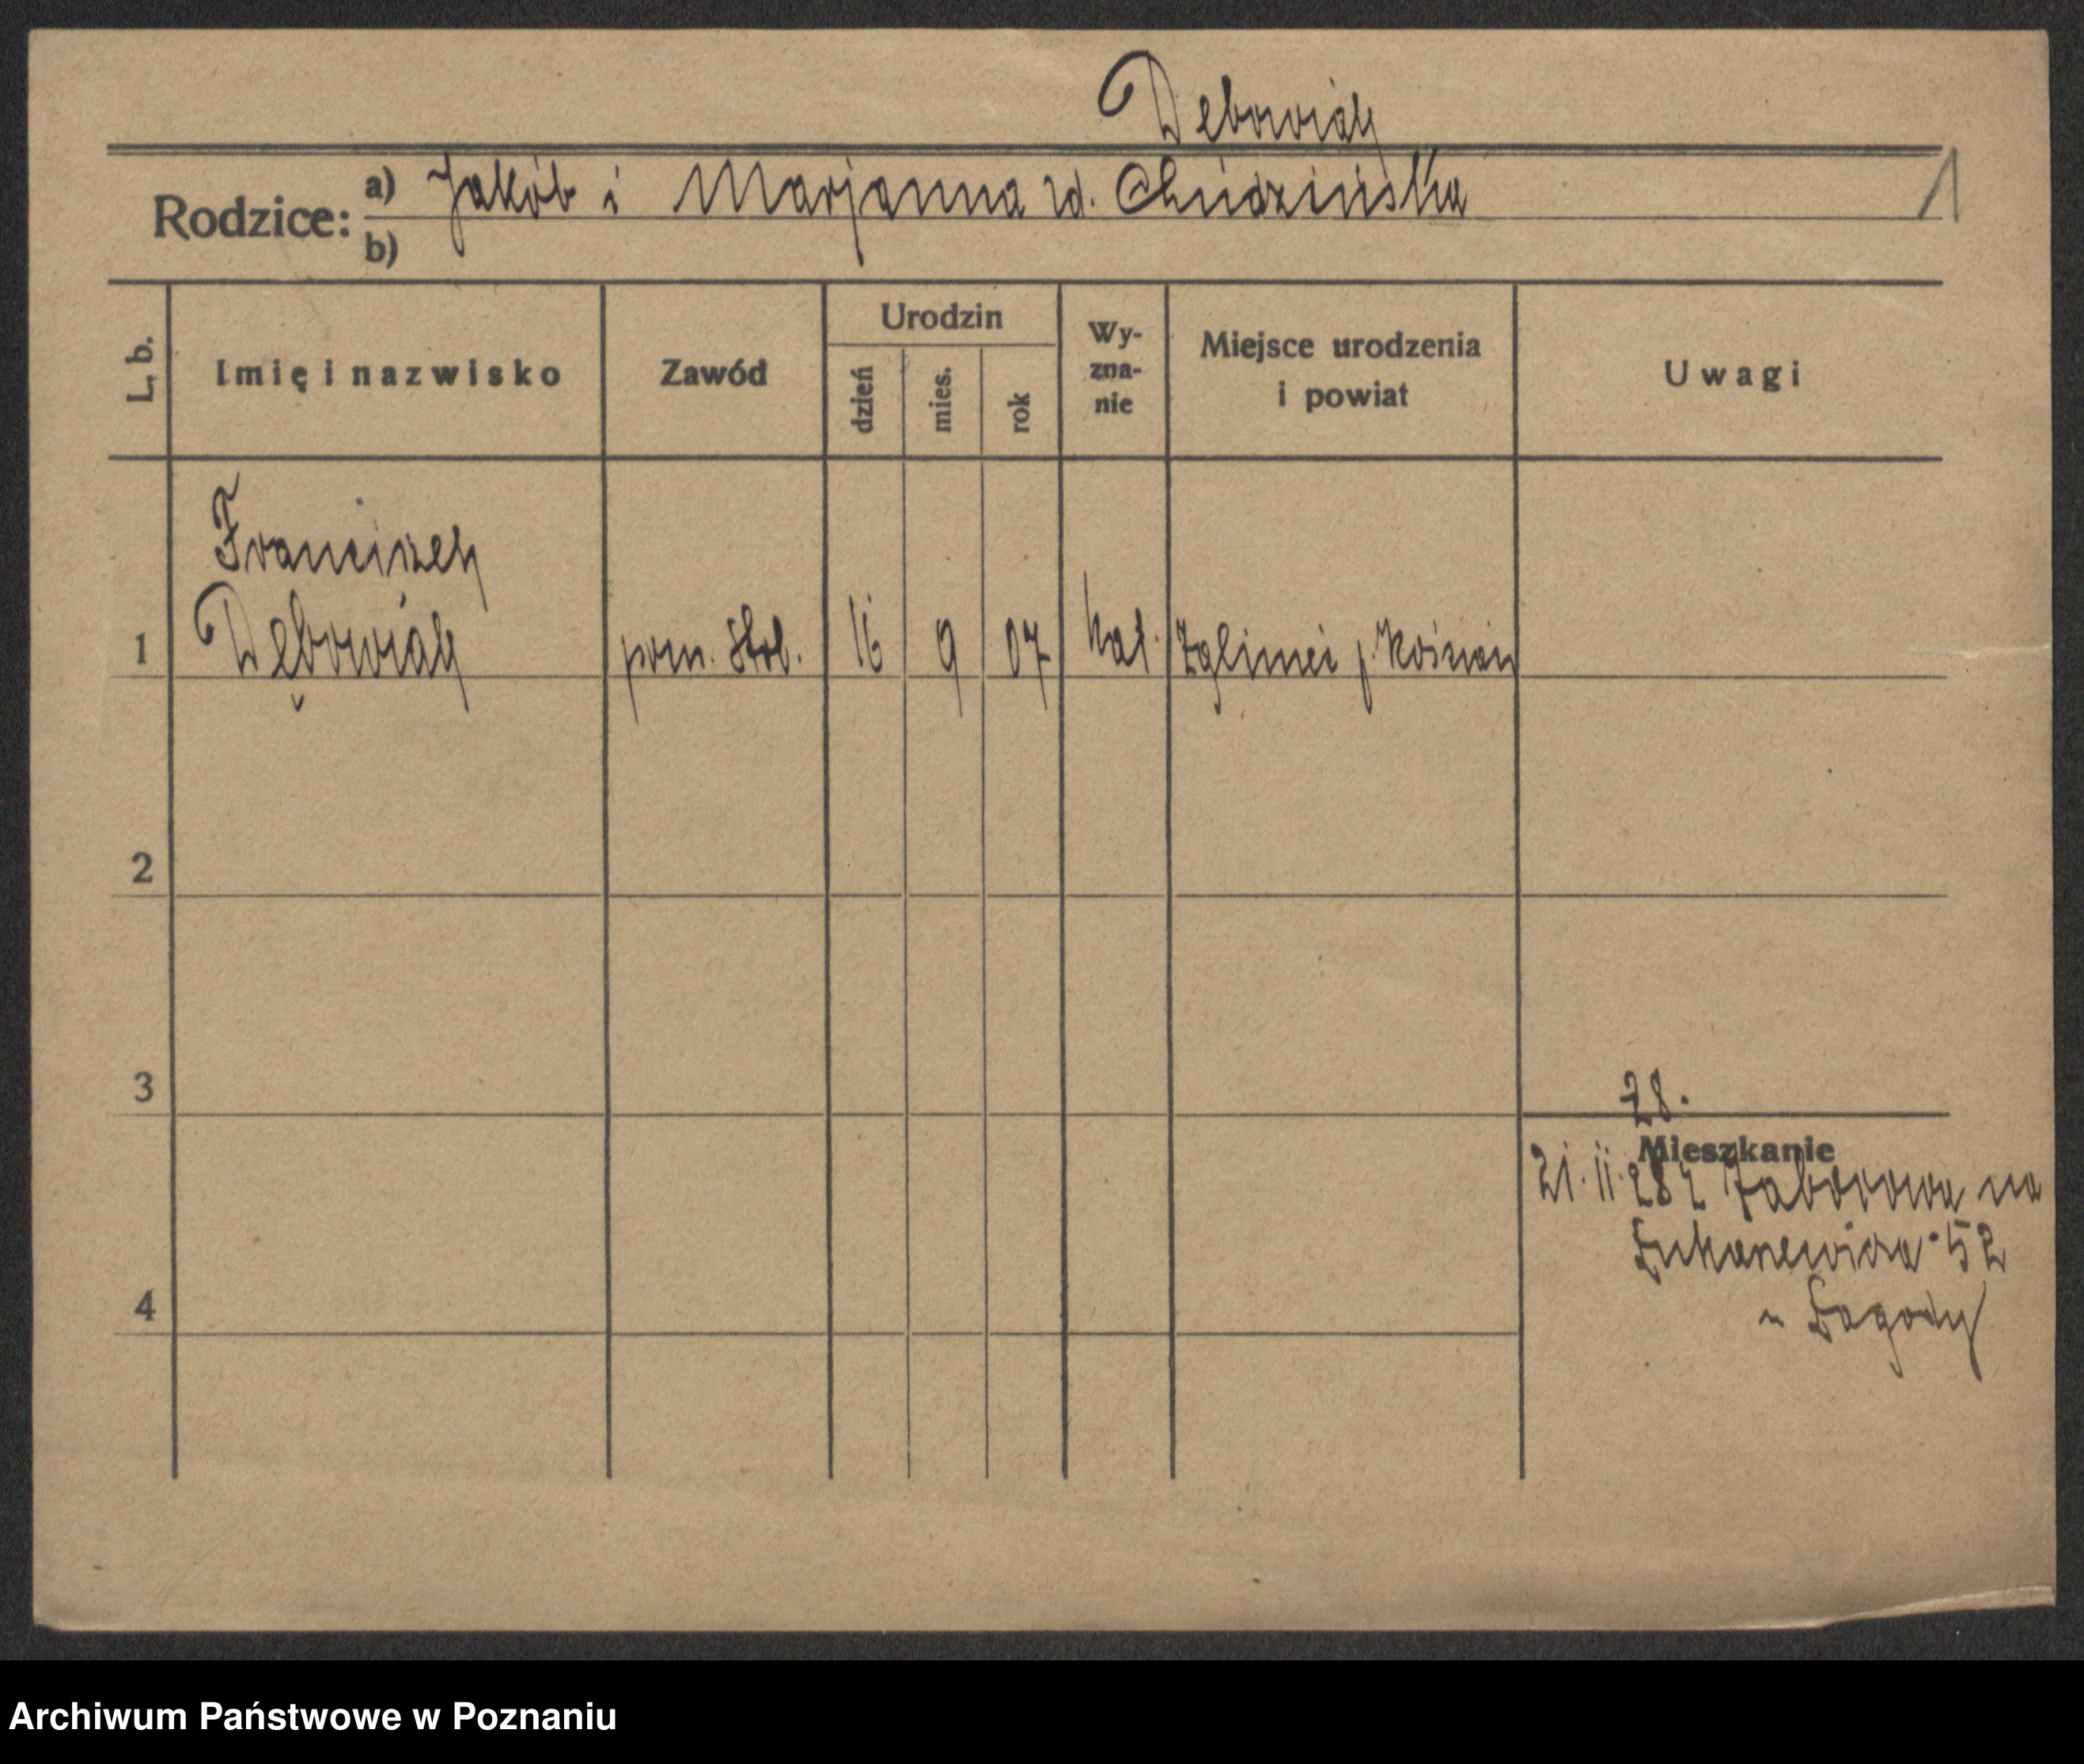 Dębowiak
Rodzice: a) Jakób i Marjanna zd. Chudzińska
b)
1
L. b.
Imię i nazwisko
Zawód
Urodzin
dzień
mies.
rok
Wy-
zna-
nie
Miejsce urodzenia
i powiat
Uwagi
Franciszek
1 Dębowiak pom. stol. 16 9 07 kat. Zgliniec p. Kościan
2
3
28.
Mieszkanie
21. 11. 28 z Zaborowa na
Łukasiewicza 52
u Łagody
4
Archiwum Państwowe w Poznaniu